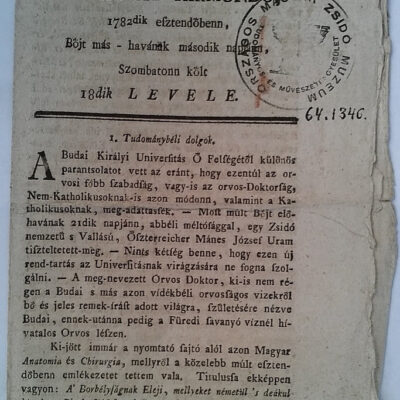 1782dik esztendőbenn,
Bőjt más - havának második napjánn,
Szombatonn költ
18dik LEVELE.
ORSZÁGOS ZSIDÓ MÚZEUM
64.1346.
1. Tudománybéli dolgok.
A Budai Királyi Universitás Ő Felségétől különös
parantsolatot vett az eránt, hogy ezentúl az or-
vosi főbb szabadság, vagy-is az orvos-Doktorság,
Nem-Katholikusoknak-is azon módonn, valamint a Ka-
tholikusoknak, meg-adattassék. — Most múlt Bőjt elő-
havának 21dik napjánn, abbéli méltósággal, egy Zsidó
nemzetű s Vallású, Őszterreicher Mánes József Uram
tiszteltetett-meg. — Nints kétség benne, hogy ezen új
rend-tartás az Universitásnak virágzására ne fogna szol-
gálni. — A meg-nevezett Orvos Doktor, ki-is nem ré-
gen a Budai s más azon vidékbéli orvosságos vizekről
bő és jeles remek-írást adott világra, születésére nézve
Budai, ennek-utánna pedig a Füredi savanyó víznél hi-
vatalos Orvos lészen.
Ki-jött immár a nyomtató sajtó alól azon Magyar
Anatomia és Chirurgia, mellyről a közelebb múlt eszten-
dőbenn emlékezetet tettem vala. Titulussa ekképpen
vagyon: A' Borbélyságnak Eleji, mellyeket németűl 's deákul